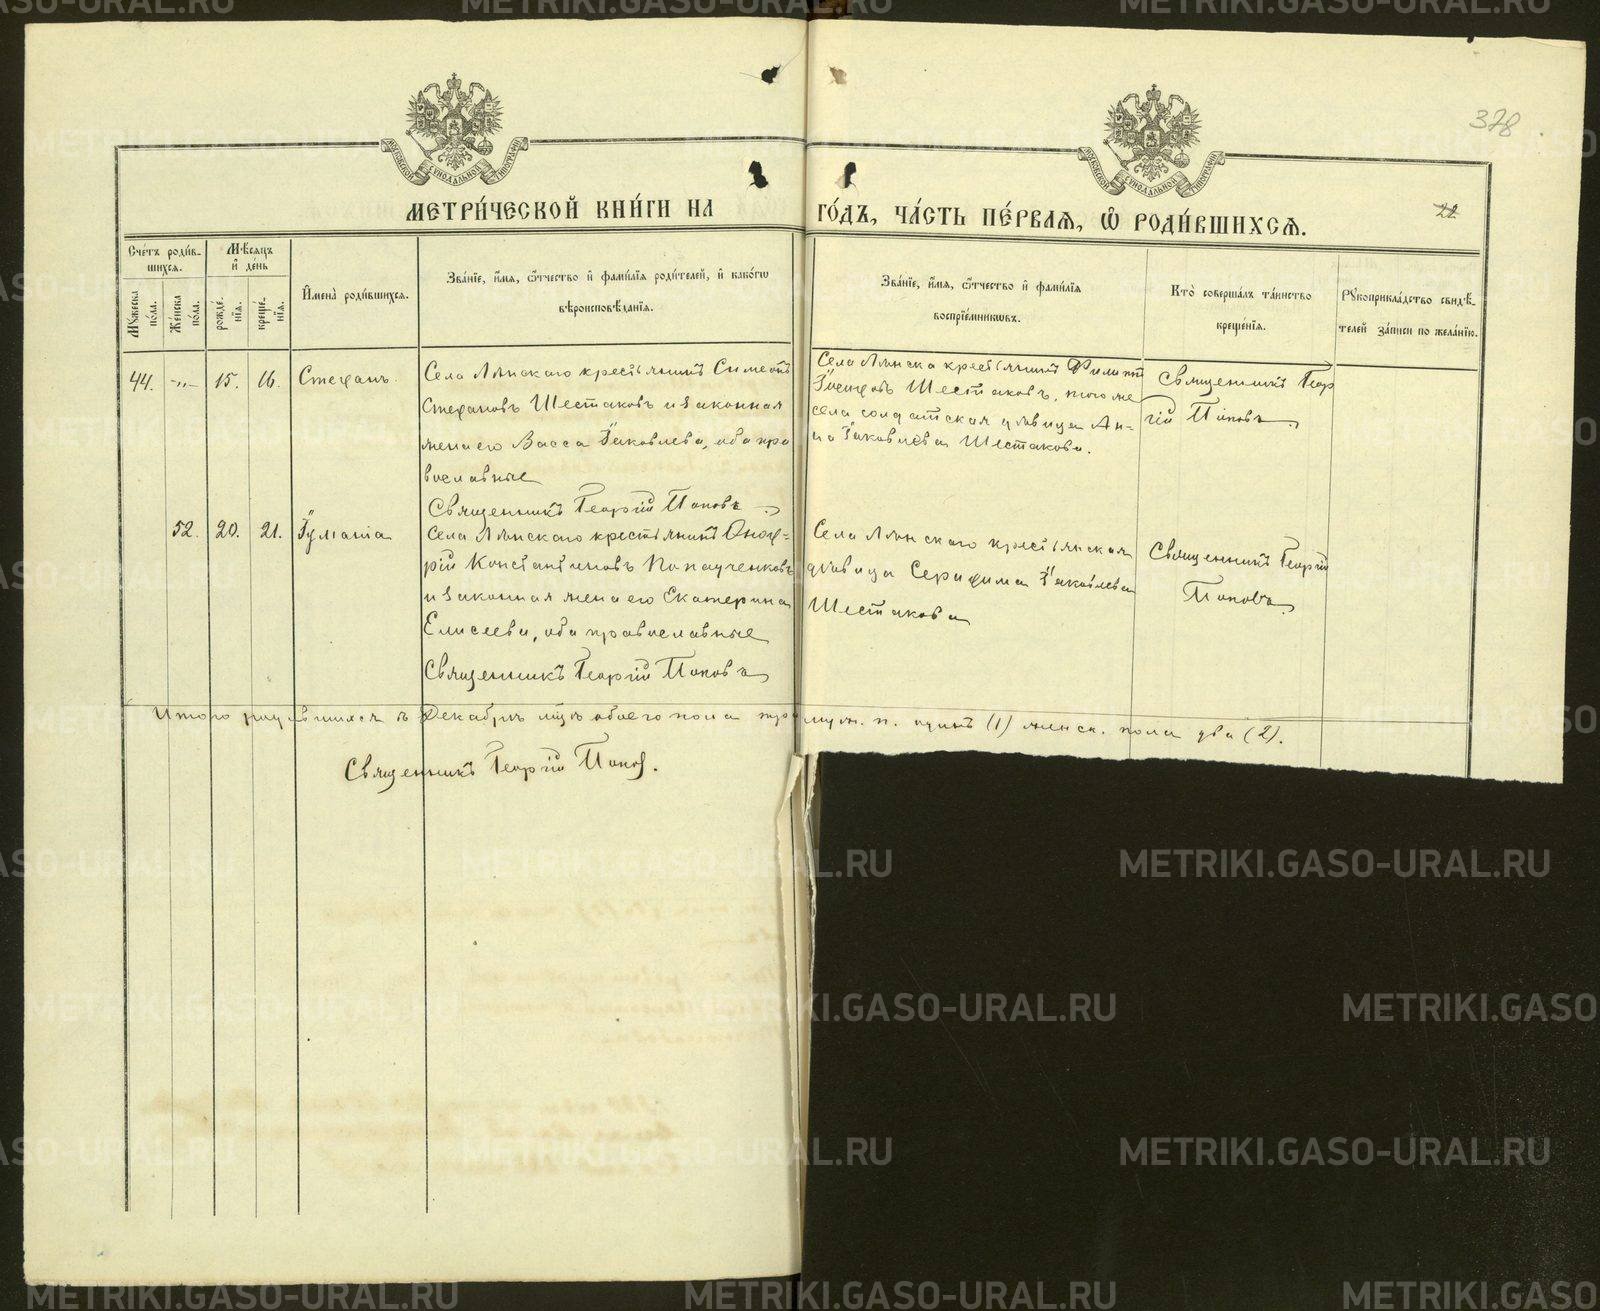 378
22
МЕТРИ́ЧЕСКОЙ КНИ́ГИ НА ГО́ДЪ, ЧА́СТЬ ПЕ́РВАЯ, Ѡ РОДИ́ВШИХСЯ.
Сче́тъ роди́вшихся.
Му́жеска по́ла.
Же́нска по́ла.
Мѣ́сяцъ и҆ де́нь
рожде́нїя.
креще́нїя.
И҆мена̀ роди́вшихся.
Зва́нїе, и҆́мя, ѻ҆́тчество и҆ фами́лїя роди́телей, и҆ како́гѡ
вѣроисповѣ́данїя.
Зва́нїе, и҆́мя, ѻ҆́тчество и҆ фами́лїя
воспрїе́мникѡвъ.
Кто̀ соверша́лъ та́инство
креще́нїя.
Рукоприкла́дство свидѣ́-
телей за́писи по жела́нїю.
44. -"- 15. 16. Стефанъ.
Села крестьянинъ Симеонъ
Стефановъ Шестаковъ и законная
жена его Васса Іаковлева, оба пра
вославные
Священникъ Георгій Поповъ
Села крестьянинъ Филиппъ
Іосифовъ Шестаковъ, того же
села солдатская дѣвица Ан-
на Іаковлева Шестакова.
Священникъ Геор
гій Поповъ.
52. 20. 21. Іуліанія
Села крестьянинъ Онуф-
рій Константиновъ
и законная жена его Екатерина
Елисеева, оба православные
Священникъ Георгій Поповъ
Села крестьянская
дѣвица Серафима Іаковлева
Шестакова
Священникъ Георгій
Поповъ.
Итого родившихся въ Декабрѣ м-цѣ обоего пола три муж. п. одинъ (1) женск. пола два (2).
Священникъ Георгій Попов.